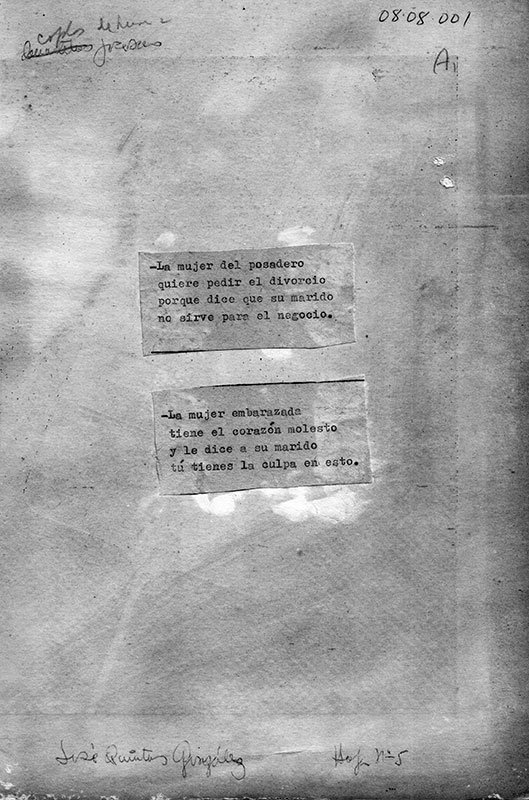 08.08.001
coplas de
jocosas
A1
-La mujer del posadero
quiere pedir el divorcio
porque dice que su marido
no sirve para el negocio.
-La mujer embarazada
tiene el corazón molesto
y le dice a su marido
tú tienes la culpa en esto.
José Quintas González
Hoja Nº 5